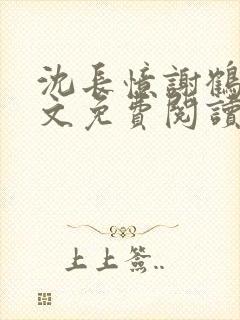 沈長憶謝鶴
文免費閱讀
上上簽..